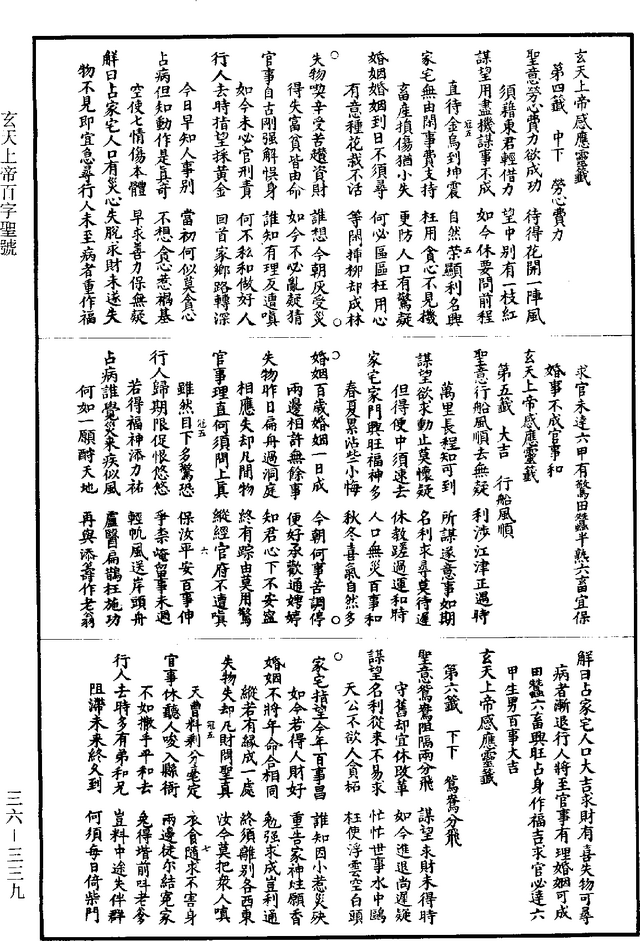 玄天上帝感應靈籤
第四籤 中下 勞心費力
聖意勞心費力欲成功 待得花開一陣風
須藉東君輕借力 望中別有一枝紅
謀望用盡機謀事不成 如今休要問前程
直待金烏到坤震 自然榮顯利名興
家宅無由閑事費支持 枉用貪心不見機
畜產損傷猶小失 更防人口有驚疑
婚姻婚姻到日不須尋 何必區區枉用心
有意種花栽不活 等閑插柳却成林
失物喫辛受苦趲資財 誰想今朝灰受災
得失富貧皆由命 如今不必亂疑猜
官事自古剛强解惧身 誰知有理反遭嗔
如今未必官别責 何不私和做好人
行人去時指望採黃金 回首家鄉路轉深
今日早知人事別 當初何似莫貪心
占病但知動作是真奇 不想貪心惹禍基
空使七情傷本體 早求善力保無疑
解曰占家宅人口有災心失脫求財未遂失
物不見即宜急尋行人未至病者重作福
求官未達六甲有驚田蠶半熟六畜宜保
婚事不成官事和
玄天上帝感應靈籤
第五籤 大吉 行船風順
聖意行船風順去無疑 利涉江津正遇時
萬里長程知可到 所謀遂意事如期
謀望欲求動止莫懷疑 名利求尋莫待遲
但得使中須速去 休教蹉過運和時
家宅家門興旺福神多 人口無災百事和
春夏累沾些小悔 秋冬喜氣自然多
婚姻百歲婚姻一日成 今朝何事苦調停
兩邊相許無餘事 便好承歡通娉婷
失物昨日扁舟過洞庭 知君心下不安寧
相應失却凡間物 終有踪由莫用驚
官事理直何須問上真 縱經官府不遭嗔
雖然目下多驚恐 保汝平安百事伸
行人歸期限促恨悠悠 爭奈淹留事未過
若得福神添力祐 輕帆風送岸頭舟
占病誰覺災來疾似風 盧醫扁鵲枉施功
何如一願酧天地 再與添壽作老翁
解曰占家宅人口大吉求財有喜失物可尋
病者漸退行人將至官事有理婚姻可成
田蠶六畜興旺占身作福吉求官必達六
甲生男百事大吉
玄天上帝感應靈籤
第六籤 下下 鴛鴦分飛
聖意鴛鴦阻隔兩分飛 謀望求財未得時
守舊却宜休改革 如今進退尚遲疑
謀望名利從來不易求 忙忙世事水中鷗
天公不欲人貪祐 枉使浮雲空白頭
家宅指望今年百事昌 誰知因小惹災殃
如今若得人財好 重告家神炷願香
婚姻不將年命合相同 勉强求成豈利通
縱若有緣成一處 終須離別各西東
失物失却凡財問聖真 汝今莫把衆人嗔
天曹料剩分毫定 衣食隨求不害身
官事休聽人唆入縣衙 兩邊徒尔結寃家
不如撒手平和去 免得堦前叫老爹
行人去時多有弟和兄 豈料中途失伴群
阻滯未來終久到 何須每日倚柴門
玄天上帝百字聖號
三六—三三九